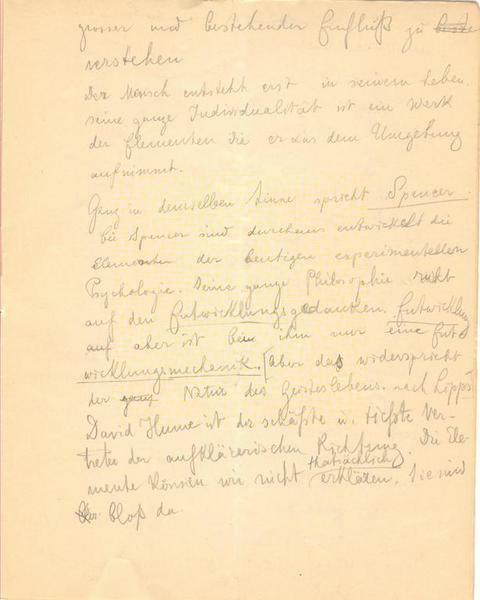 grosser und bestehender Einfluß zu
verstehen
Der Mensch entsteht erst in seinem Leben.
seine ganze Individualität ist ein Werk
der Elementen die er aus dem Umgebung
aufnimmt.
Ganz in demselben Sinne spricht Spencer.
bei Spencer sind durchaus entwickelt die
Elementen der heutigen experimentellen
Psychologie. Seine ganze Philosophie ruht
auf den Entwicklungsgedanken. Entwicklung
auf aber ist bei ihm nur eine Ent
wicklungsmechanik. [Aber das widerspricht
der Natur des Geisteslebens. nach Lipps
David Hume ist der schäfste u. tiefste Ver-
treter der aufklärerischen Richtung. Die Ele-
mente können wir nicht thatsächlich erklären. Sie sind
bloß da.